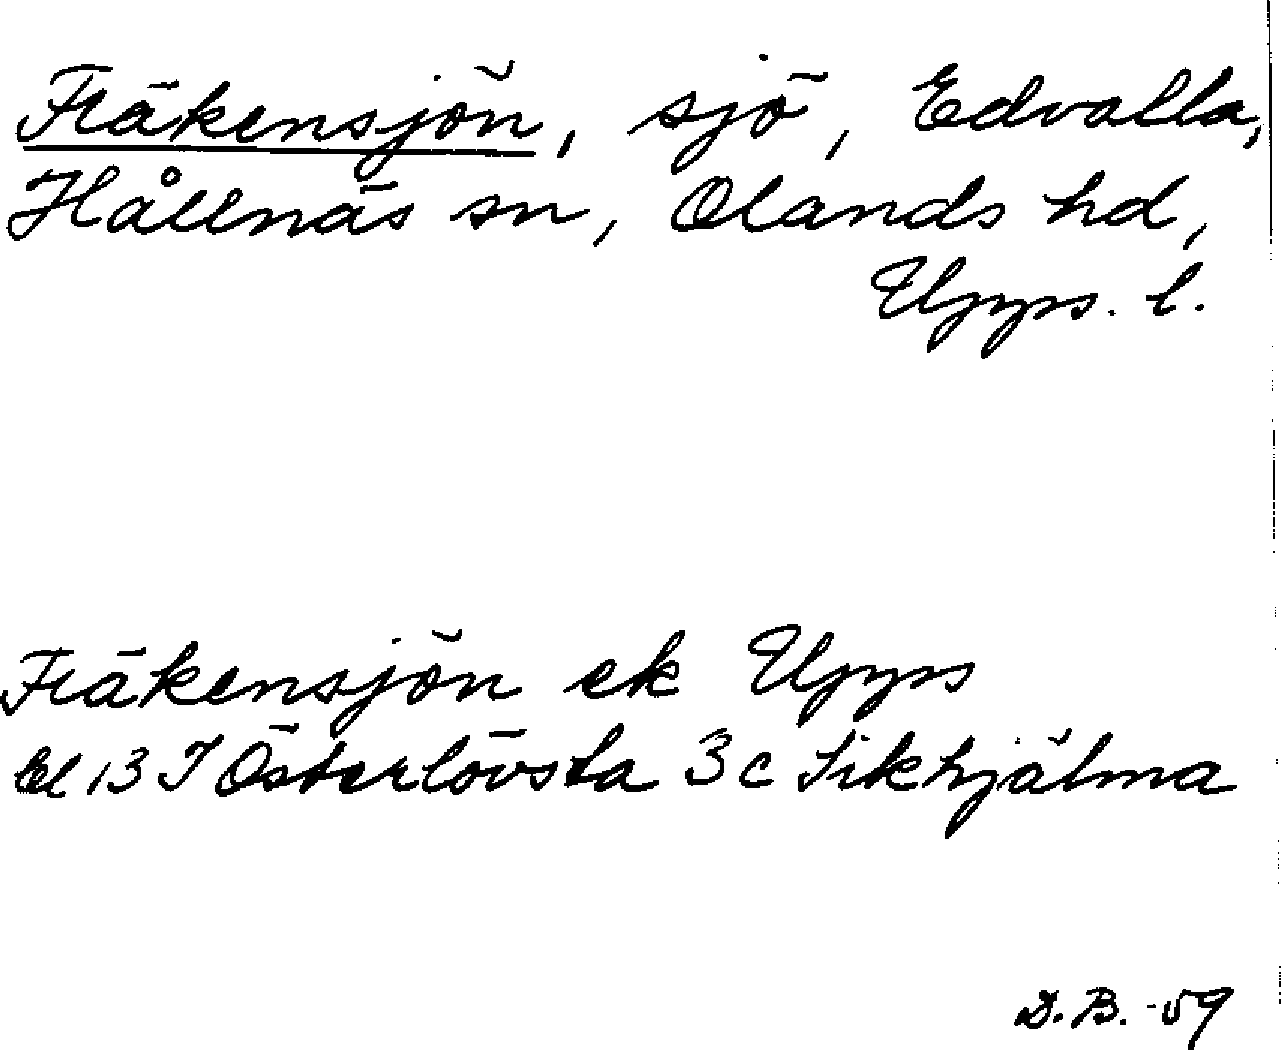 Fräkensjön, sjö, Edvalla,
Hållnäs sn, Olands hd,
Upps. l.
Fräkensjön ek Upps
bl 13 I Österlövsta 3 c Sikhjälma
D.B. -59